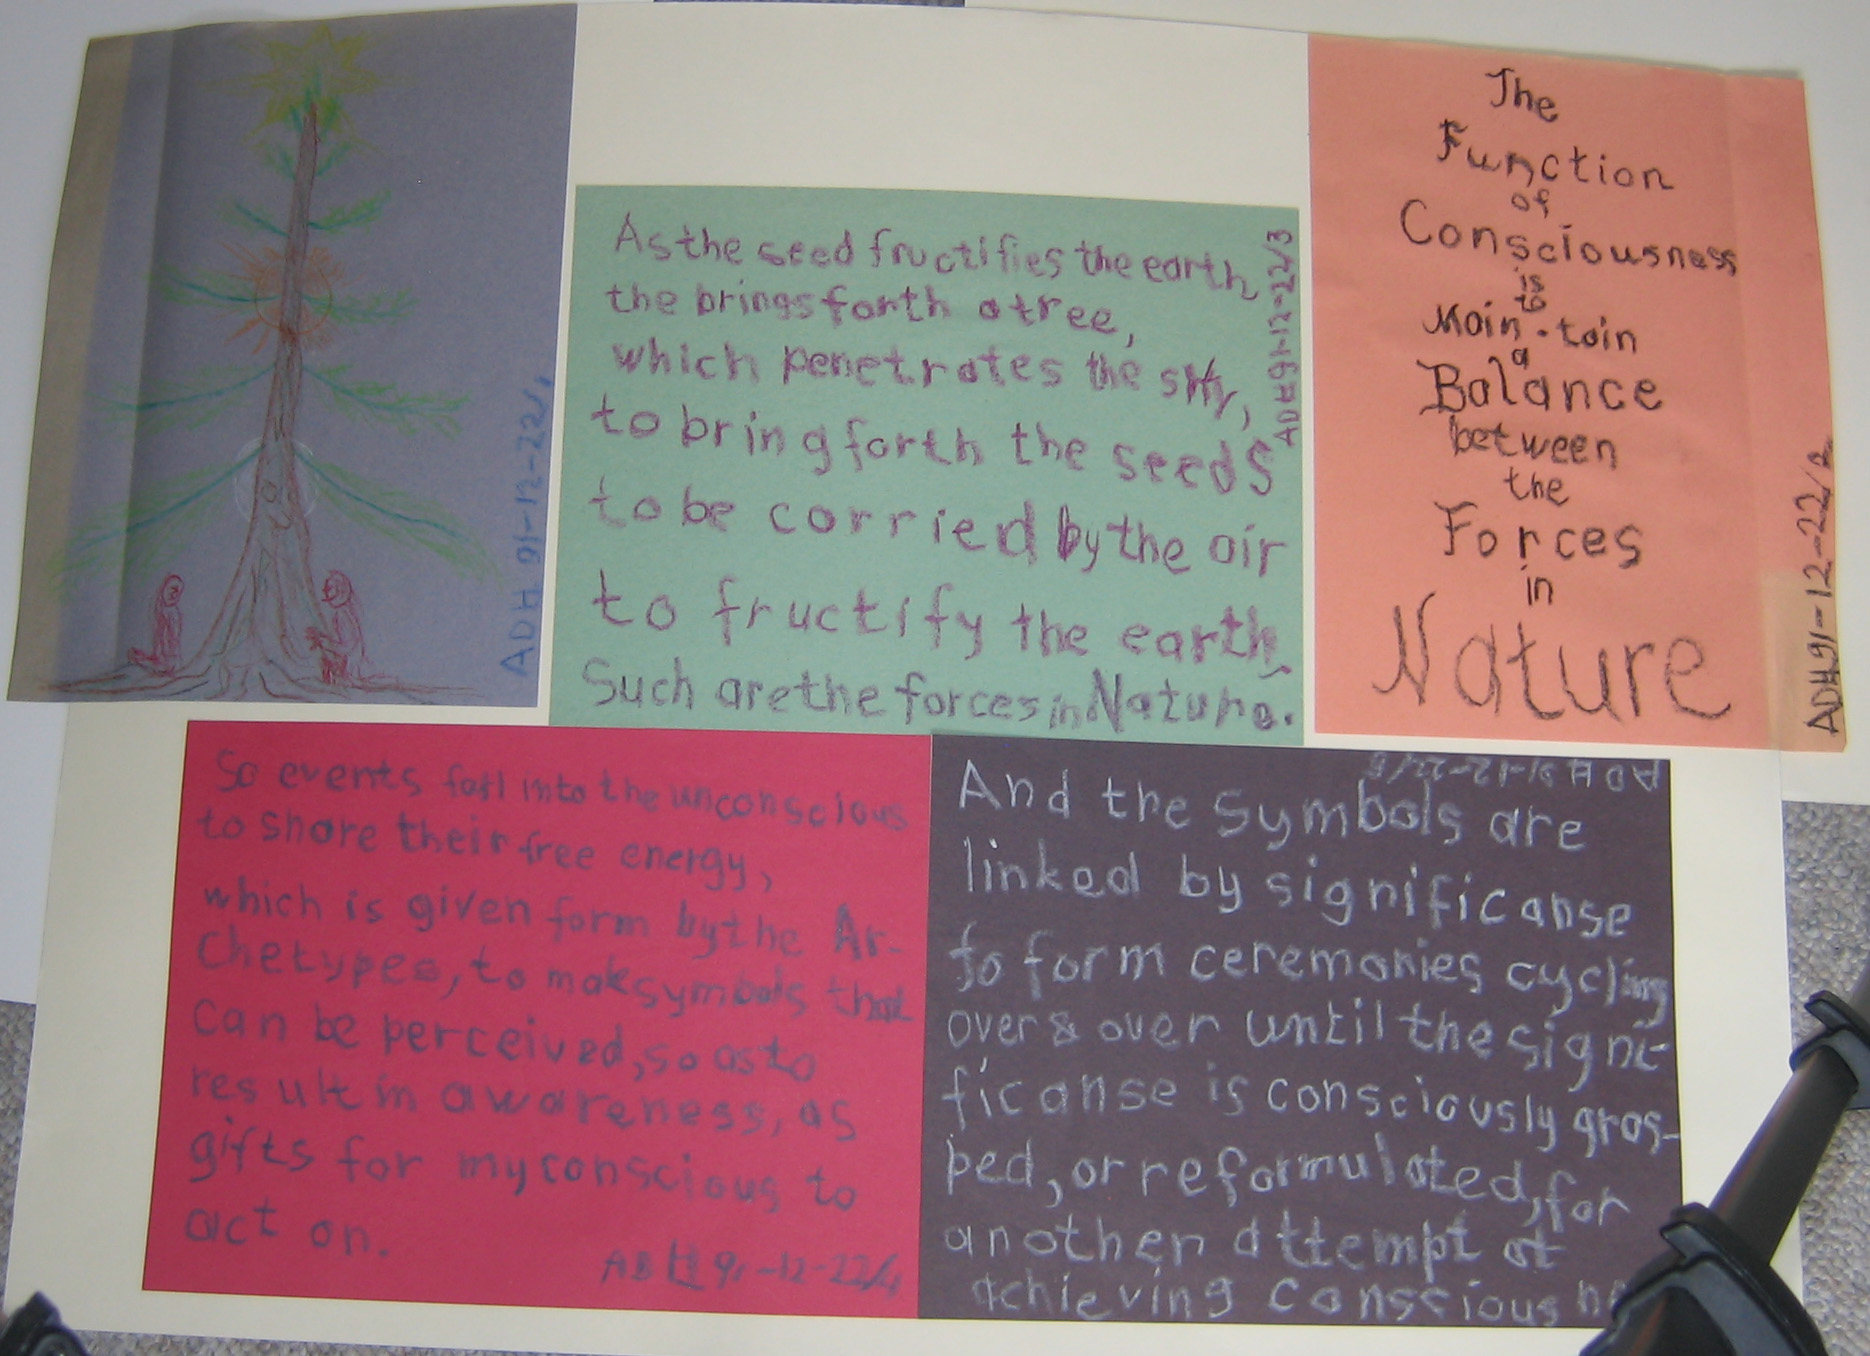 ADH 91-12-22/1
The
Function
of
Consciousness
is
to
Main-tain
a
Balance
between
the
Forces
in
Nature
ADH 91-12-22/2
As the seed fructifies the earth
the brings forth a tree,
which penetrates the sky,
to bring forth the seeds
to be carried by the air
to fructify the earth,
Such are the forces in Nature.
ADH 91-12-22/3
So events fall into the unconscious
to share their free energy,
which is given form by the Ar-
chetypes, to make symbols that
can be perceived, so as to
result in awareness, as
gifts for my conscious to
act on.
91-12-22/4
ADH 91-12-22/5
And the symbols are
linked by significanse
to form ceremonies cycling
over & over until the signi-
ficanse is consciously gras-
ped, or reformulated, for
another attempt at
achieving conscious